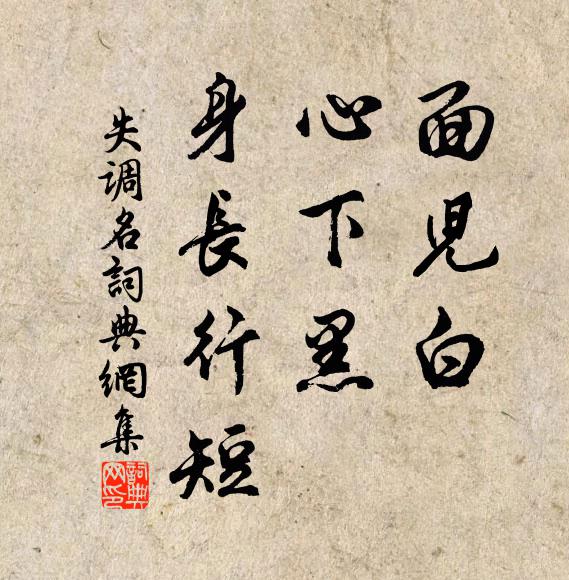 面児白
心下黑
身長行短
失调名詞典網集
詞典网印